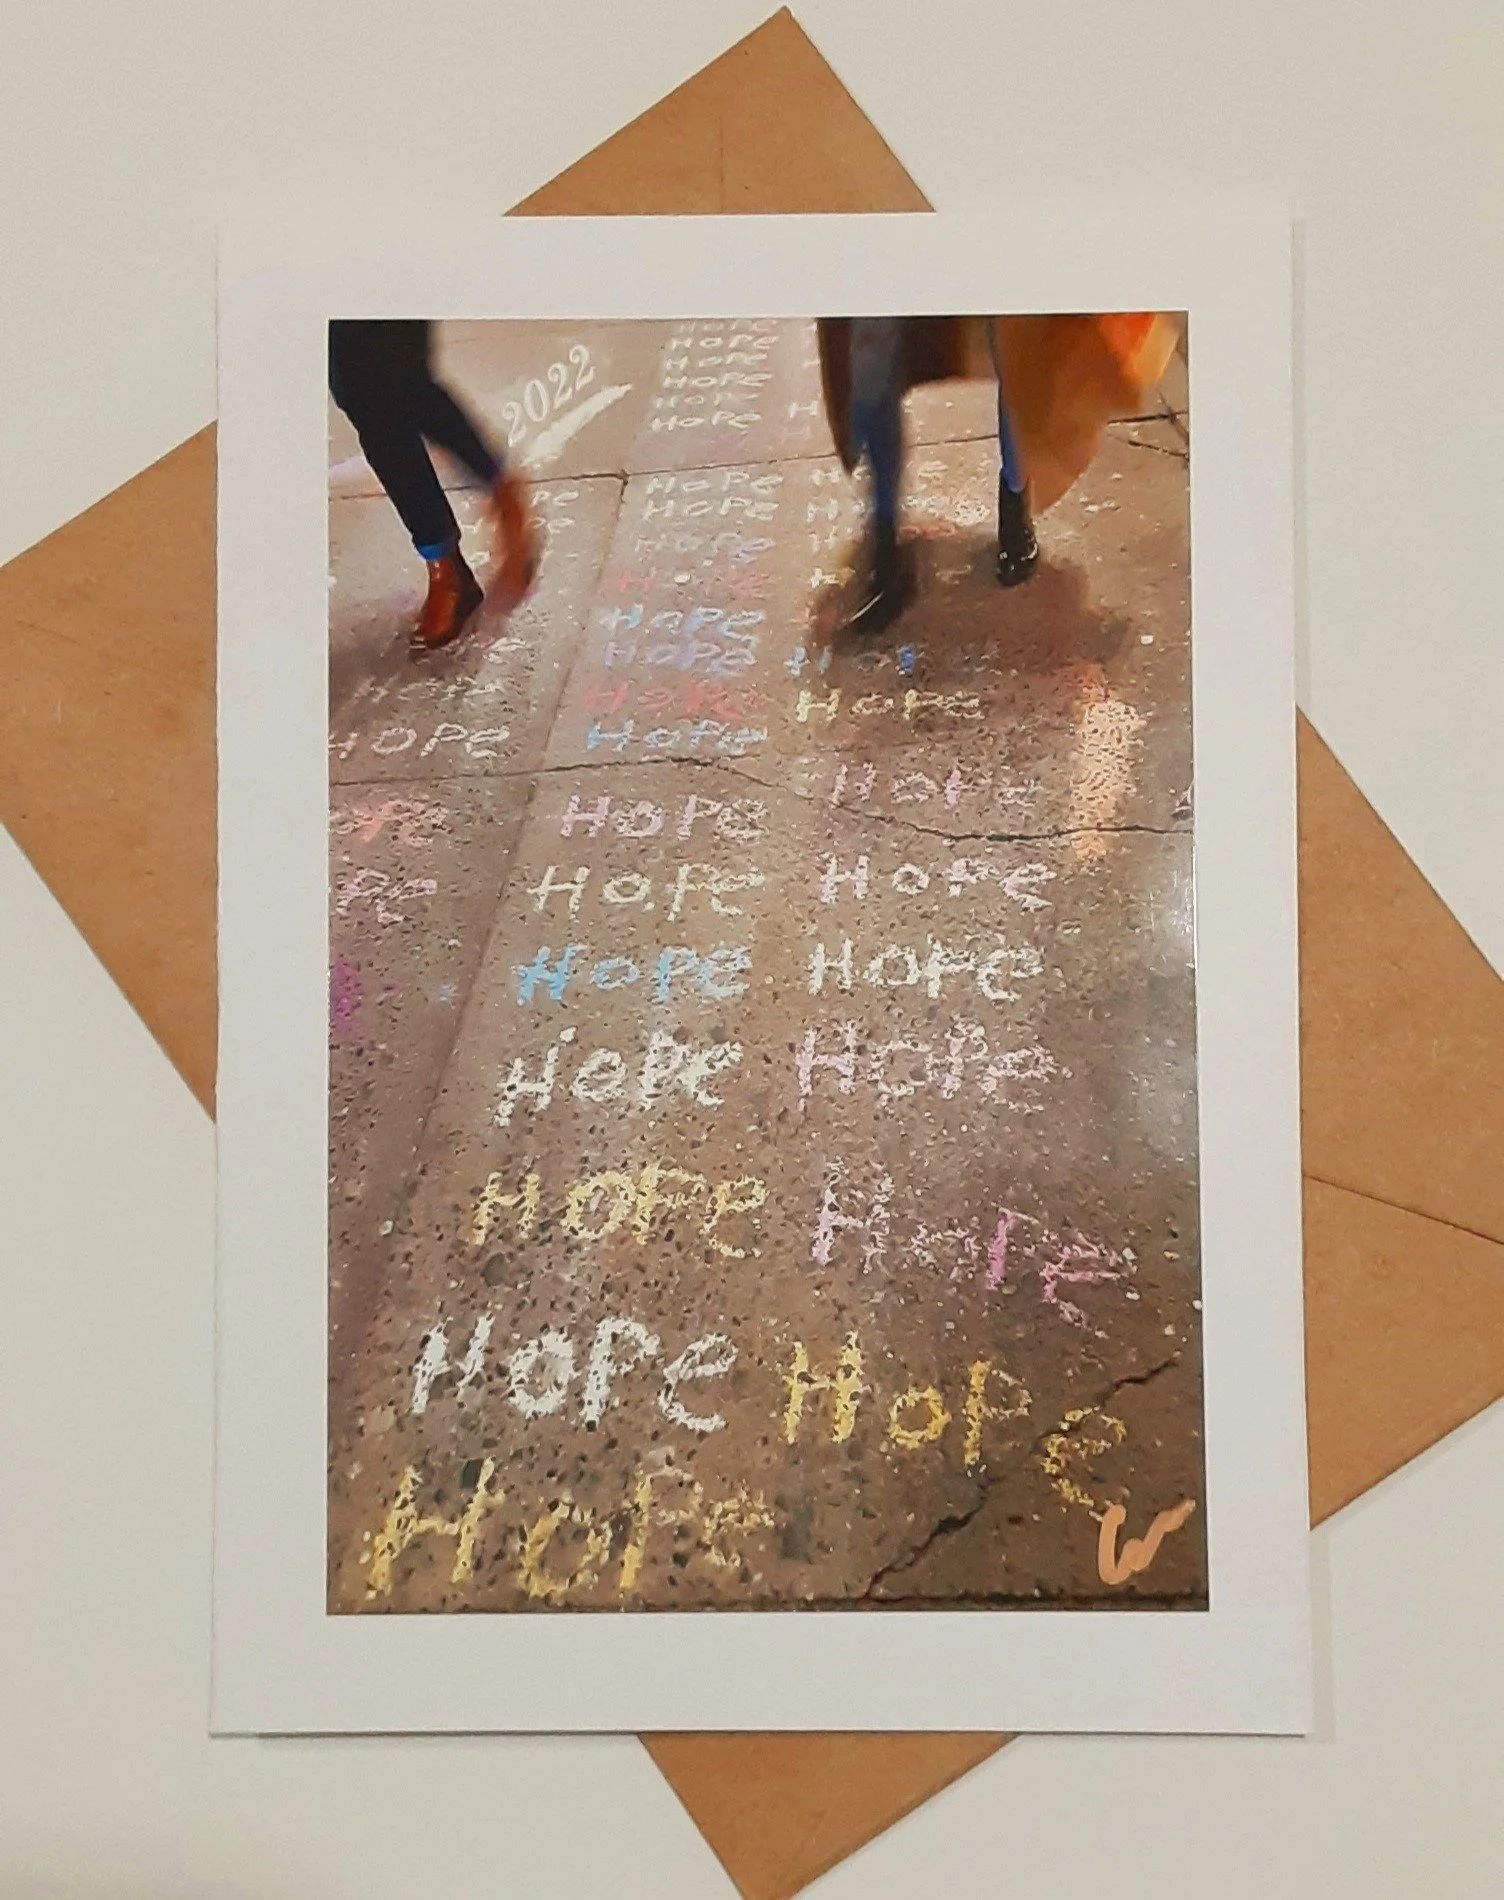 HoPe
HoPe
HoPe
HoPe
HoPe
HoPe
2022
HoPe
HoPe
HoPe
HoPe
HoPe
HoPe
HoPe
HoPe HoPe
HOPe HoPe
HoPe HoPe
HoPe HoPe
HoPe HoPe
HoPe HoPe
HoPe HoPe
HoPe HoPe
HoPe